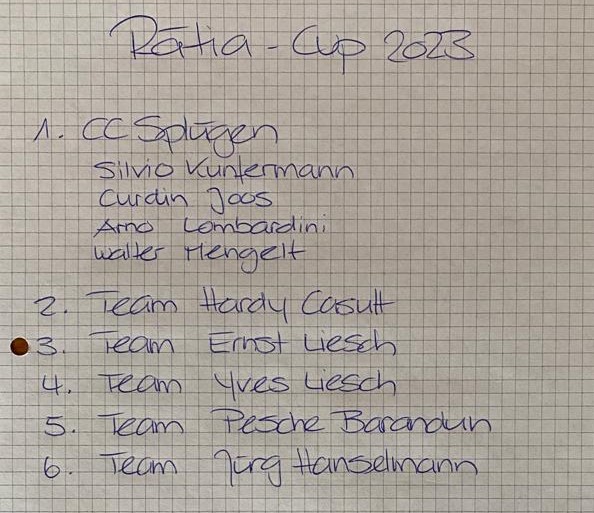 Rätia - Cup 2023
1. CC Splügen
Silvio Kuntermann
Curdin Joos
Arno Lombardini
Walter Mengelt
2. Team Hardy Casutt
3. Team Ernst Liesch
4. Team Yves Liesch
5. Team Pesche Barandun
6. Team Jürg Hanselmann